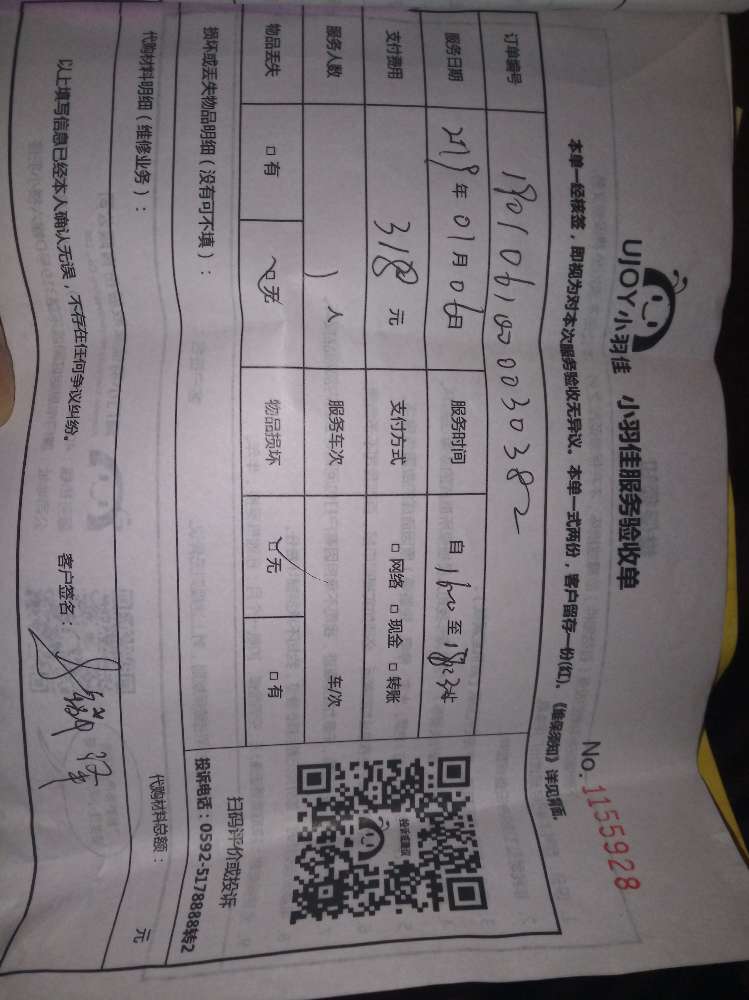 UJOY小羽佳 小羽佳服务验收单
No. 1155928
本单一经核签，即视为对本次服务验收无异议。本单一式两份，客户留存一份(红)。《维保须知》详见背面。
订单编号
服务日期 年 01月 06日 服务时间 自 至
支付费用 318 元 支付方式 □ 网络 □ 现金 □ 转账
服务人数 人 服务车次 车/次
物品丢失 □ 有 □ 无 物品损坏 □ 无 □ 有
损坏或丢失物品明细（没有可不填）：
投诉有奖
扫码评价或投诉
投诉电话：0592-5178888转2
代购材料明细（维修业务）： 代购材料总额： 元
以上填写信息已经本人确认无误，不存在任何争议纠纷。 客户签名：